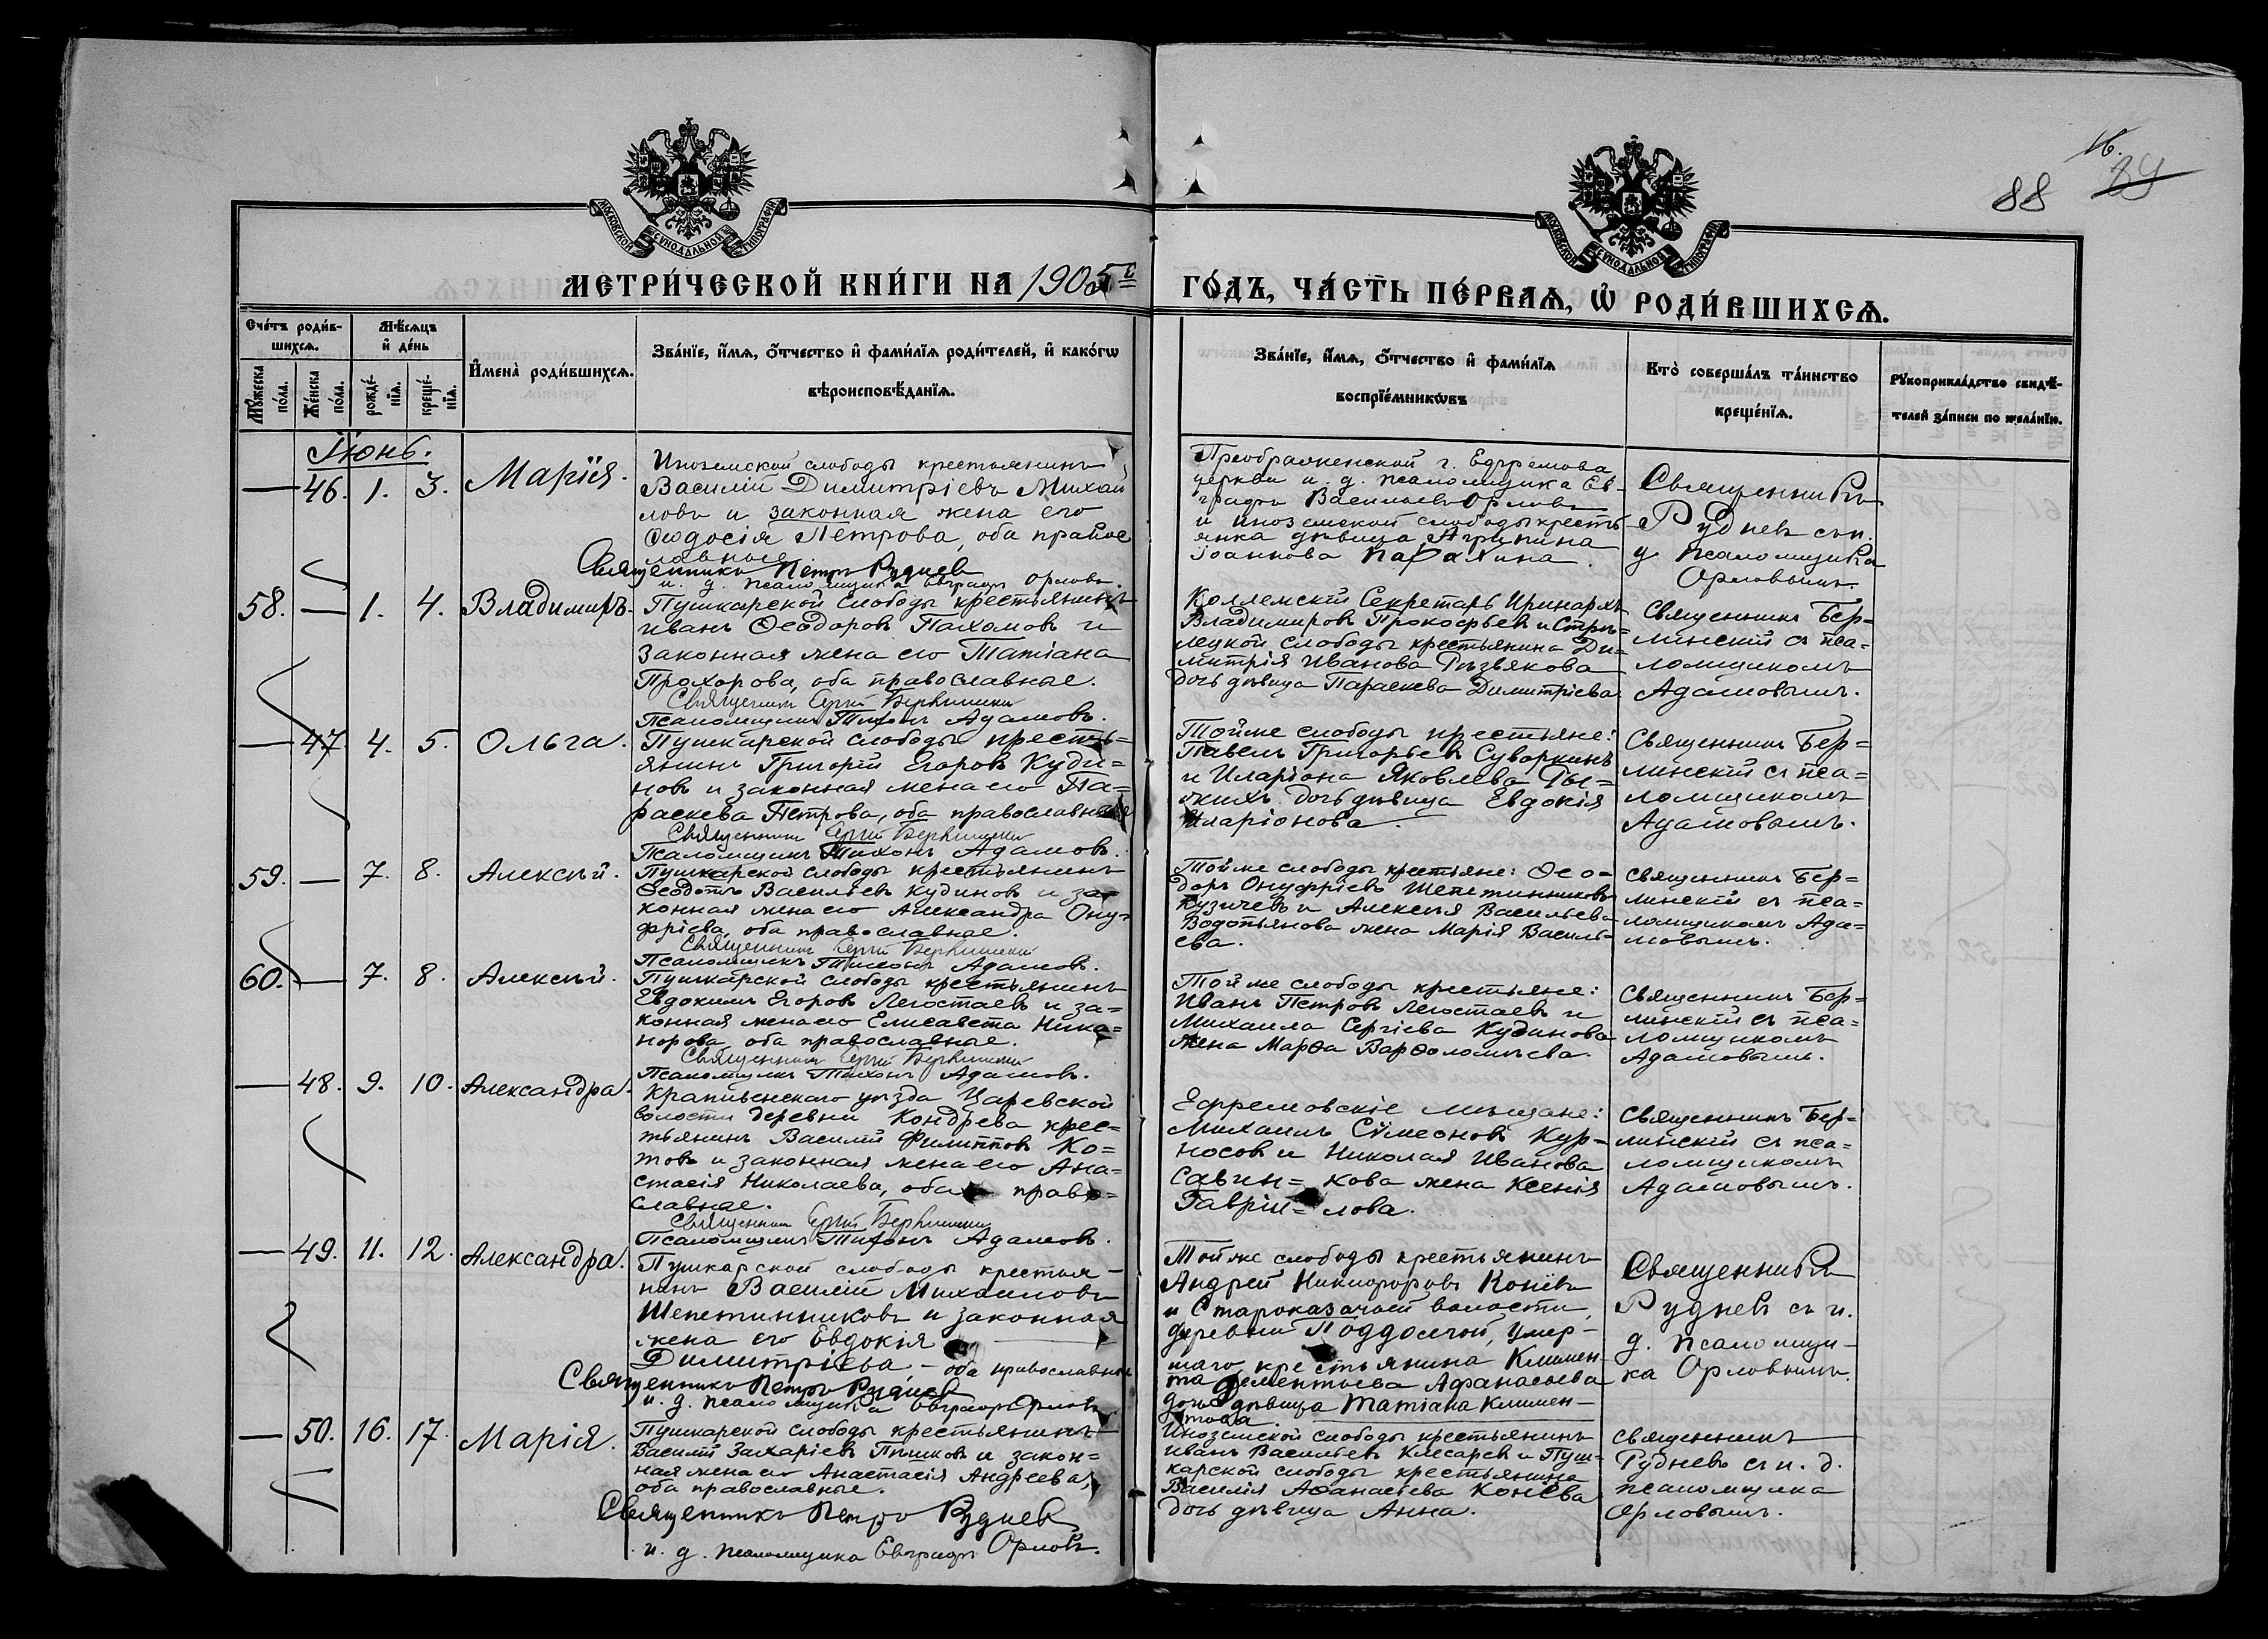 16.
88 89
МОСКОВСКОЙ СѴНОДАЛЬНОЙ ТИПОГРАФІИ
МОСКОВСКОЙ СѴНОДАЛЬНОЙ ТИПОГРАФІИ
МЕТРИ́ЧЕСКОЙ КНИ́ГИ НА 1905й
ГО́ДЪ, ЧА́СТЬ ПЕ́РВАѦ, Ѡ҆ РОДИ́ВШИХСѦ.
Сче́тъ роди́в-
шихсѧ.
Мѣ́сѧцъ
и҆ де́нь
Мꙋ́жеска по́ла.
Же́нска по́ла.
рожде́-нїѧ.
креще́-нїѧ.
И҆мена̀ роди́вшихсѧ.
Зва́нїе, и҆́мѧ, ѻ҆́тчество и҆ фами́лїѧ роди́телей, и҆ како́гѡ
вѣроисповѣ́данїѧ.
Зва́нїе, и҆́мѧ, ѻ҆́тчество и҆ фами́лїѧ
воспрїе́мникѡвъ
Кто̀ соверша́лъ та́инство
креще́нїѧ.
Рꙋкоприкла́дство свидѣ́-
телей за́писи по жела́нїю.
Іюнь.
— 46. 1. 3. Марія.
Иноземской слободы крестьянинъ
Василій Димитріевъ Михай
ловъ и законная жена его
Ѳеодосія Петрова, оба правос
лавные
Священникъ Петръ Рудневъ
и. д. псаломщика Евграфъ Орловъ.
Преображенской г. Ефремова
церкви и. д. псаломщика Ев-
графъ Васильевъ Орловъ
и иноземской слободы кресть
янка дѣвица Агрипина
Іоаннова
Священникъ
Рудневъ съ и.
д. псаломщика
Орловымъ.
58. — 1. 4. Владимиръ.
Пушкарской слободы крестьянинъ
Иванъ Ѳеодоровъ Пахомовъ и
законная жена его Татіана
Прохорова, оба православные.
Священникъ Сергій
Псаломщикъ Тихонъ Адамовъ.
Коллежскій Секретарь Иринархъ
Владимировъ Прокофьевъ и Стрѣ-
лецкой слободы крестьянина Ди-
митрія Иванова
дочь дѣвица Параскева Димитріева
Священникъ Бер=
линскій съ пса=
ломщикомъ
Адамовымъ.
— 47 4. 5. Ольга.
Пушкарской слободы кресть=
янинъ Григорій Егоровъ Куди=
новъ и законная жена его Па=
раскева Петрова, оба православные
Священникъ Сергій
Псаломщикъ Тихонъ Адамовъ.
Тойже слободы крестьяне:
Павелъ Григорьевъ Суворкинъ
и Иларіона Яковлева Ры=
жихъ дочь дѣвица Евдокія
Иларіонова.
Священникъ Бер=
линскій съ пса=
ломщикомъ
Адамовымъ.
59. — 7. 8. Алексѣй.
Пушкарской слободы крестьянинъ
Ѳеодотъ Васильевъ Кудиновъ и за=
конная жена его Александра Ону=
фріева, оба православные.
Священникъ Сергій
Псаломщикъ Тихонъ Адамовъ.
Тойже слободы крестьяне: Ѳео=
доръ Онуфріевъ Шепетинниковъ
Кузичевъ и Алексѣя Васильева
Водопьянова жена Марія Василь=
ева.
Священникъ Бер=
линскій съ пса=
ломщикомъ Ада=
мовымъ.
60. — 7. 8. Алексѣй.
Пушкарской слободы крестьянинъ
Евдокимъ Егоровъ Легостаевъ и за=
конная жена его Елисавета Ника=
норова, оба православные.
Священникъ Сергій
Псаломщикъ Тихонъ Адамовъ.
Тойже слободы крестьяне:
Иванъ Петровъ Легостаевъ и
Михаила Сергіева Кудинова
жена Марѳа Варѳоломѣева.
Священникъ Бер=
линскій съ пса=
ломщикомъ
Адамовымъ.
— 48. 9. 10. Александра.
Крапивенскаго уѣзда Царевской
волости деревни Кондрева крес=
тьянинъ Василій Филипповъ Ко=
товъ и законная жена его Ана=
стасія Николаева, оба право=
славные.
Священникъ Сергій
Псаломщикъ Тихонъ Адамовъ.
Ефремовскіе мѣщане:
Михаилъ Сѵмеоновъ Кур=
носовъ и Николая Иванова
Савин= кова жена Ксенія
Гавріи= лова.
Священникъ Бер=
линскій съ пса=
ломщикомъ
Адамовымъ.
— 49. 11. 12. Александра.
Пушкарской слободы крестья-
нинъ Василій Михаиловъ
Шепетинниковъ и законная
жена его Евдокія
Димитріева, — оба православные
Священникъ Петръ Рудневъ
и. д. псаломщика Евграфъ Орловъ.
Тойже слободы крестьянинъ
Андрей Никифоровъ Конёвъ
и Староказачьей волости,
деревни Поддолгой, умер-
шаго крестьянина Климен-
та Дементьева Афанасьева
дочь дѣвица Татіана Климен-
това.
Священникъ
Рудневъ съ и.
д. псаломщи-
ка Орловымъ.
— 50. 16. 17. Марія.
Пушкарской слободы крестьянинъ
Василій Захаріевъ Пѣшковъ и закон=
ная жена его Анастасія Андреева,
оба православные.
Священникъ Петръ Рудневъ
и. д. псаломщика Евграфъ Орловъ.
Иноземской слободы крестьянинъ
Иванъ Васильевъ Клесаревъ и Пуш-
карской слободы крестьянина
Василія Аѳанасьева Конёва
дочь дѣвица Анна.
Священникъ
Рудневъ съ и. д.
псаломщика
Орловымъ.